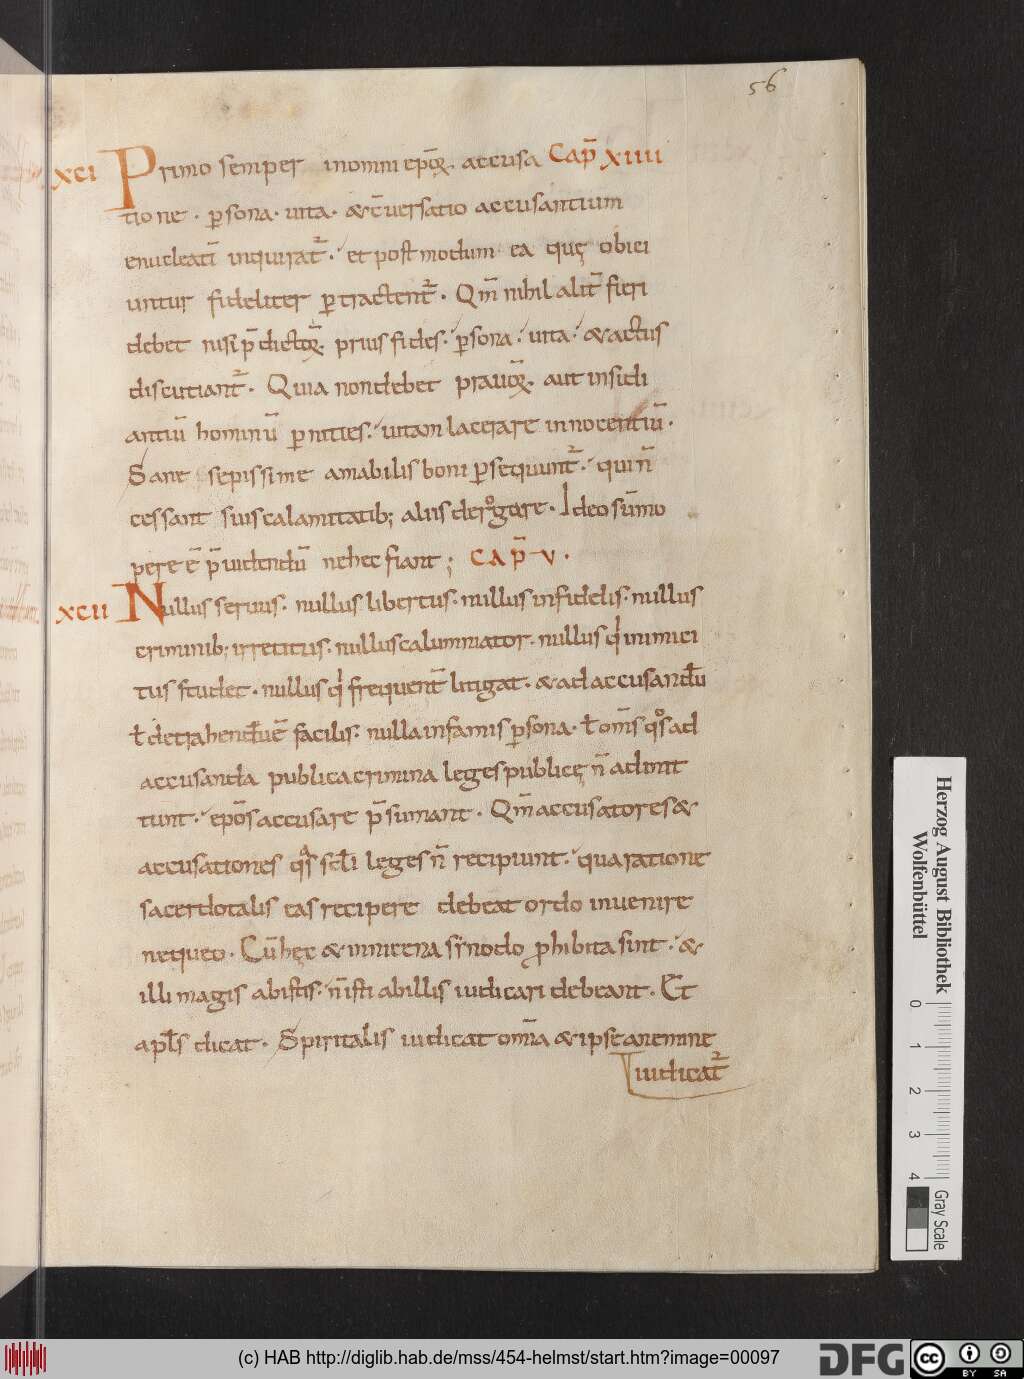 56
XCI Primo semper inomni ep̄oꝝ. accusa Cap̄ XIIII
tione. ꝑsona. uita. & c̄uersatio accusantium
enucleati inquirat̄. et postmodum ea quę obici
untur fideliter ꝑtractent̄. Qm̄ nihil alit̄ fieri
debet nisi p̄dictoꝝ. prius fides. ꝑsona. uita. & actus
discutiant̄. Quia nondebet prauoꝝ. aut insidi
antiū hominū ꝑnities. uitam lacerare innocentiū.
Sane sepissime amabilis boni ꝑsequunt̄. qui n̄
cessant suis calamitatib; aliis derogare. Ideo sūmo
pere ē p̄uidendū ne hec fiant; CAP̄ V.
XCII Nullus seruus. nullus libertus. nullus infidelis. nullus
criminib; irretitus. nullus calumniator. nullus qi inimici
tus studet. nullus qi frequent̄ litigat. & ad accusandū
ł detrahendū ē facilis. nulla infamis ꝑsona. ł om̄s qos ad
accusanda publica crimina leges publicę n̄ admit
tunt. ep̄os accusare p̄sumant. Qm̄ accusatores &
accusationes qas scłi leges n̄ recipiunt. qua ratione
sacerdotalis eas recipere debeat ordo inuenire
nequeo. Cū hęc & in nicena synodo ꝓhibita sint. &
illi magis ab istis. n̄ isti ab illis iudicari debeant. Et
apłs dicat. Spiritalis iudicat om̄a & ipse a nemine
iudicat̄
Herzog August Bibliothek
Wolfenbüttel
0 1 2 3 4
Gray Scale
(c) HAB http://diglib.hab.de/mss/454-helmst/start.htm?image=00097
DFG
cc BY SA